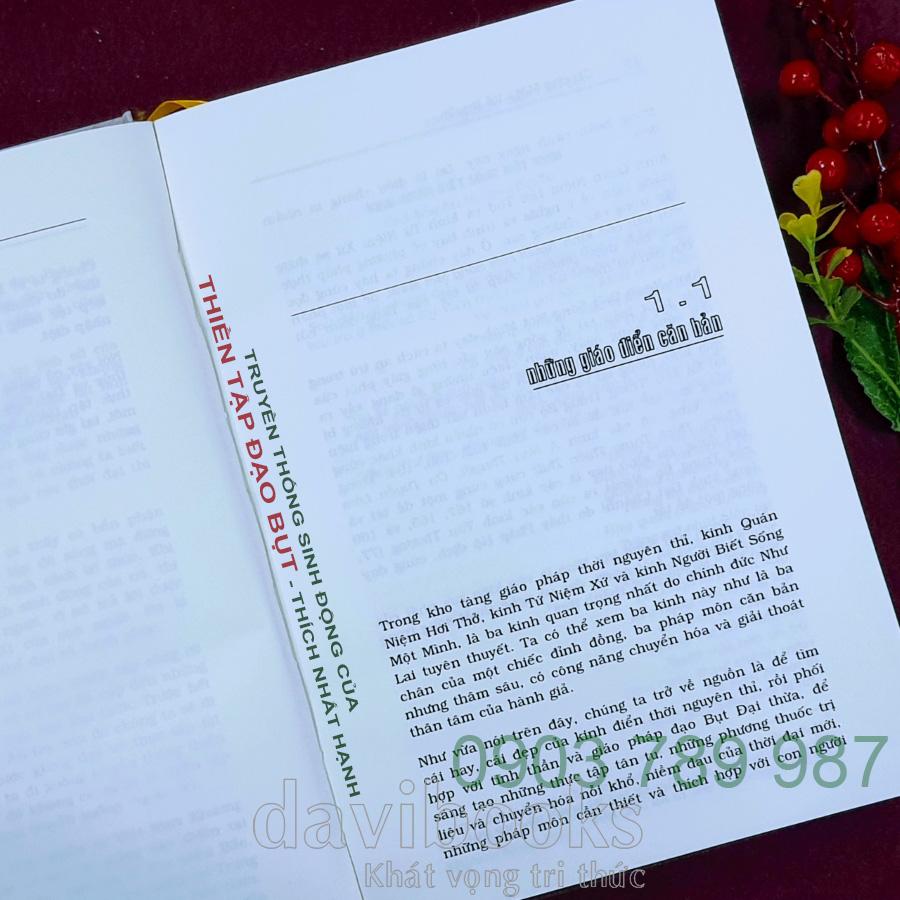 TRUYỀN THỐNG SINH ĐỘNG CỦA
THIỀN TẬP ĐẠO BỤT - THÍCH NHẤT HẠNH
1.1
những giáo điển căn bản
Trong kho tàng giáo pháp thời nguyên thỉ, kinh Quán
Niệm Hơi Thở, kinh Tứ Niệm Xứ và kinh Người Biết Sống
Một Mình, là ba kinh quan trọng nhất do chính đức Như
Lai tuyên thuyết. Ta có thể xem ba kinh này như là ba
chân của một chiếc đỉnh đồng, ba pháp môn căn bản
nhưng thâm sâu, có công năng chuyển hóa và giải thoát
thân tâm của hành giả.
Như vừa nói trên đây, chúng ta trở về nguồn là để tìm
cái hay, cái đẹp của kinh điển thời nguyên thỉ, rồi phối
hợp với tinh thần và giáo pháp đạo Bụt Đại thừa, để
sáng tạo những thực tập tân tu, những phương thuốc trị
liệu và chuyển hóa nỗi khổ, niềm đau của thời đại mới,
những pháp môn cần thiết và thích hợp với con người
0903 789 987
davibooks
Khát vọng tri thức